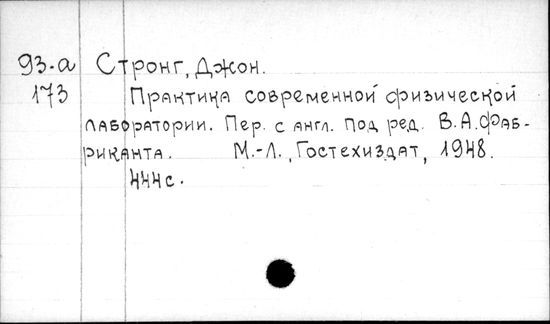 93.а Стронг, Джон.
173 Практика современной физической
лаборатории. Пер. с англ. под ред. В.А. Фаб-
риканта. М.-Л., Гостехиздат, 1948.
444с.